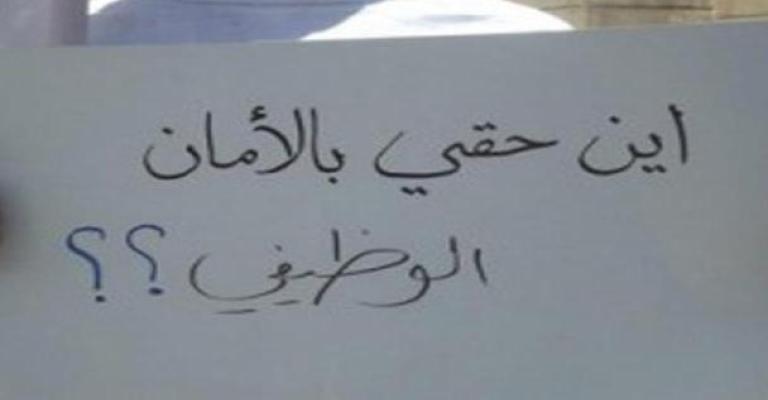 اين حقي بالأمان
الوظيفي ؟؟